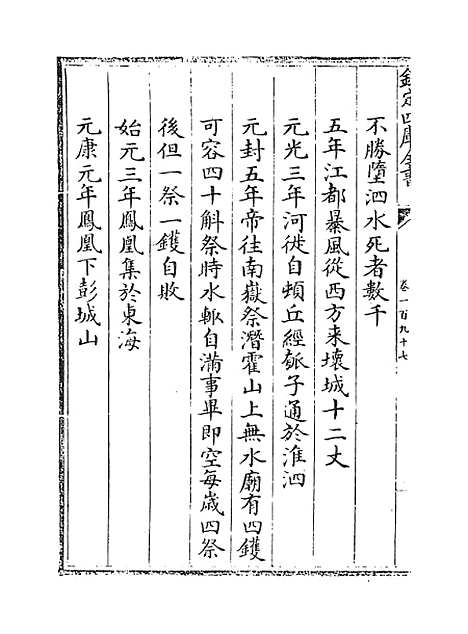 欽定四庫全書
卷一百九十七
不勝墮泗水死者數千
五年江都暴風從西方來壞城十二丈
元光三年河徙自頓丘經瓠子通於淮泗
元封五年帝往南嶽祭潛霍山上無水廟有四鑊
可容四十斛祭時水輙自滿事畢即空每歲四祭
後但一祭一鑊自敗
始元三年鳳凰集於東海
元康元年鳳凰下彭城山